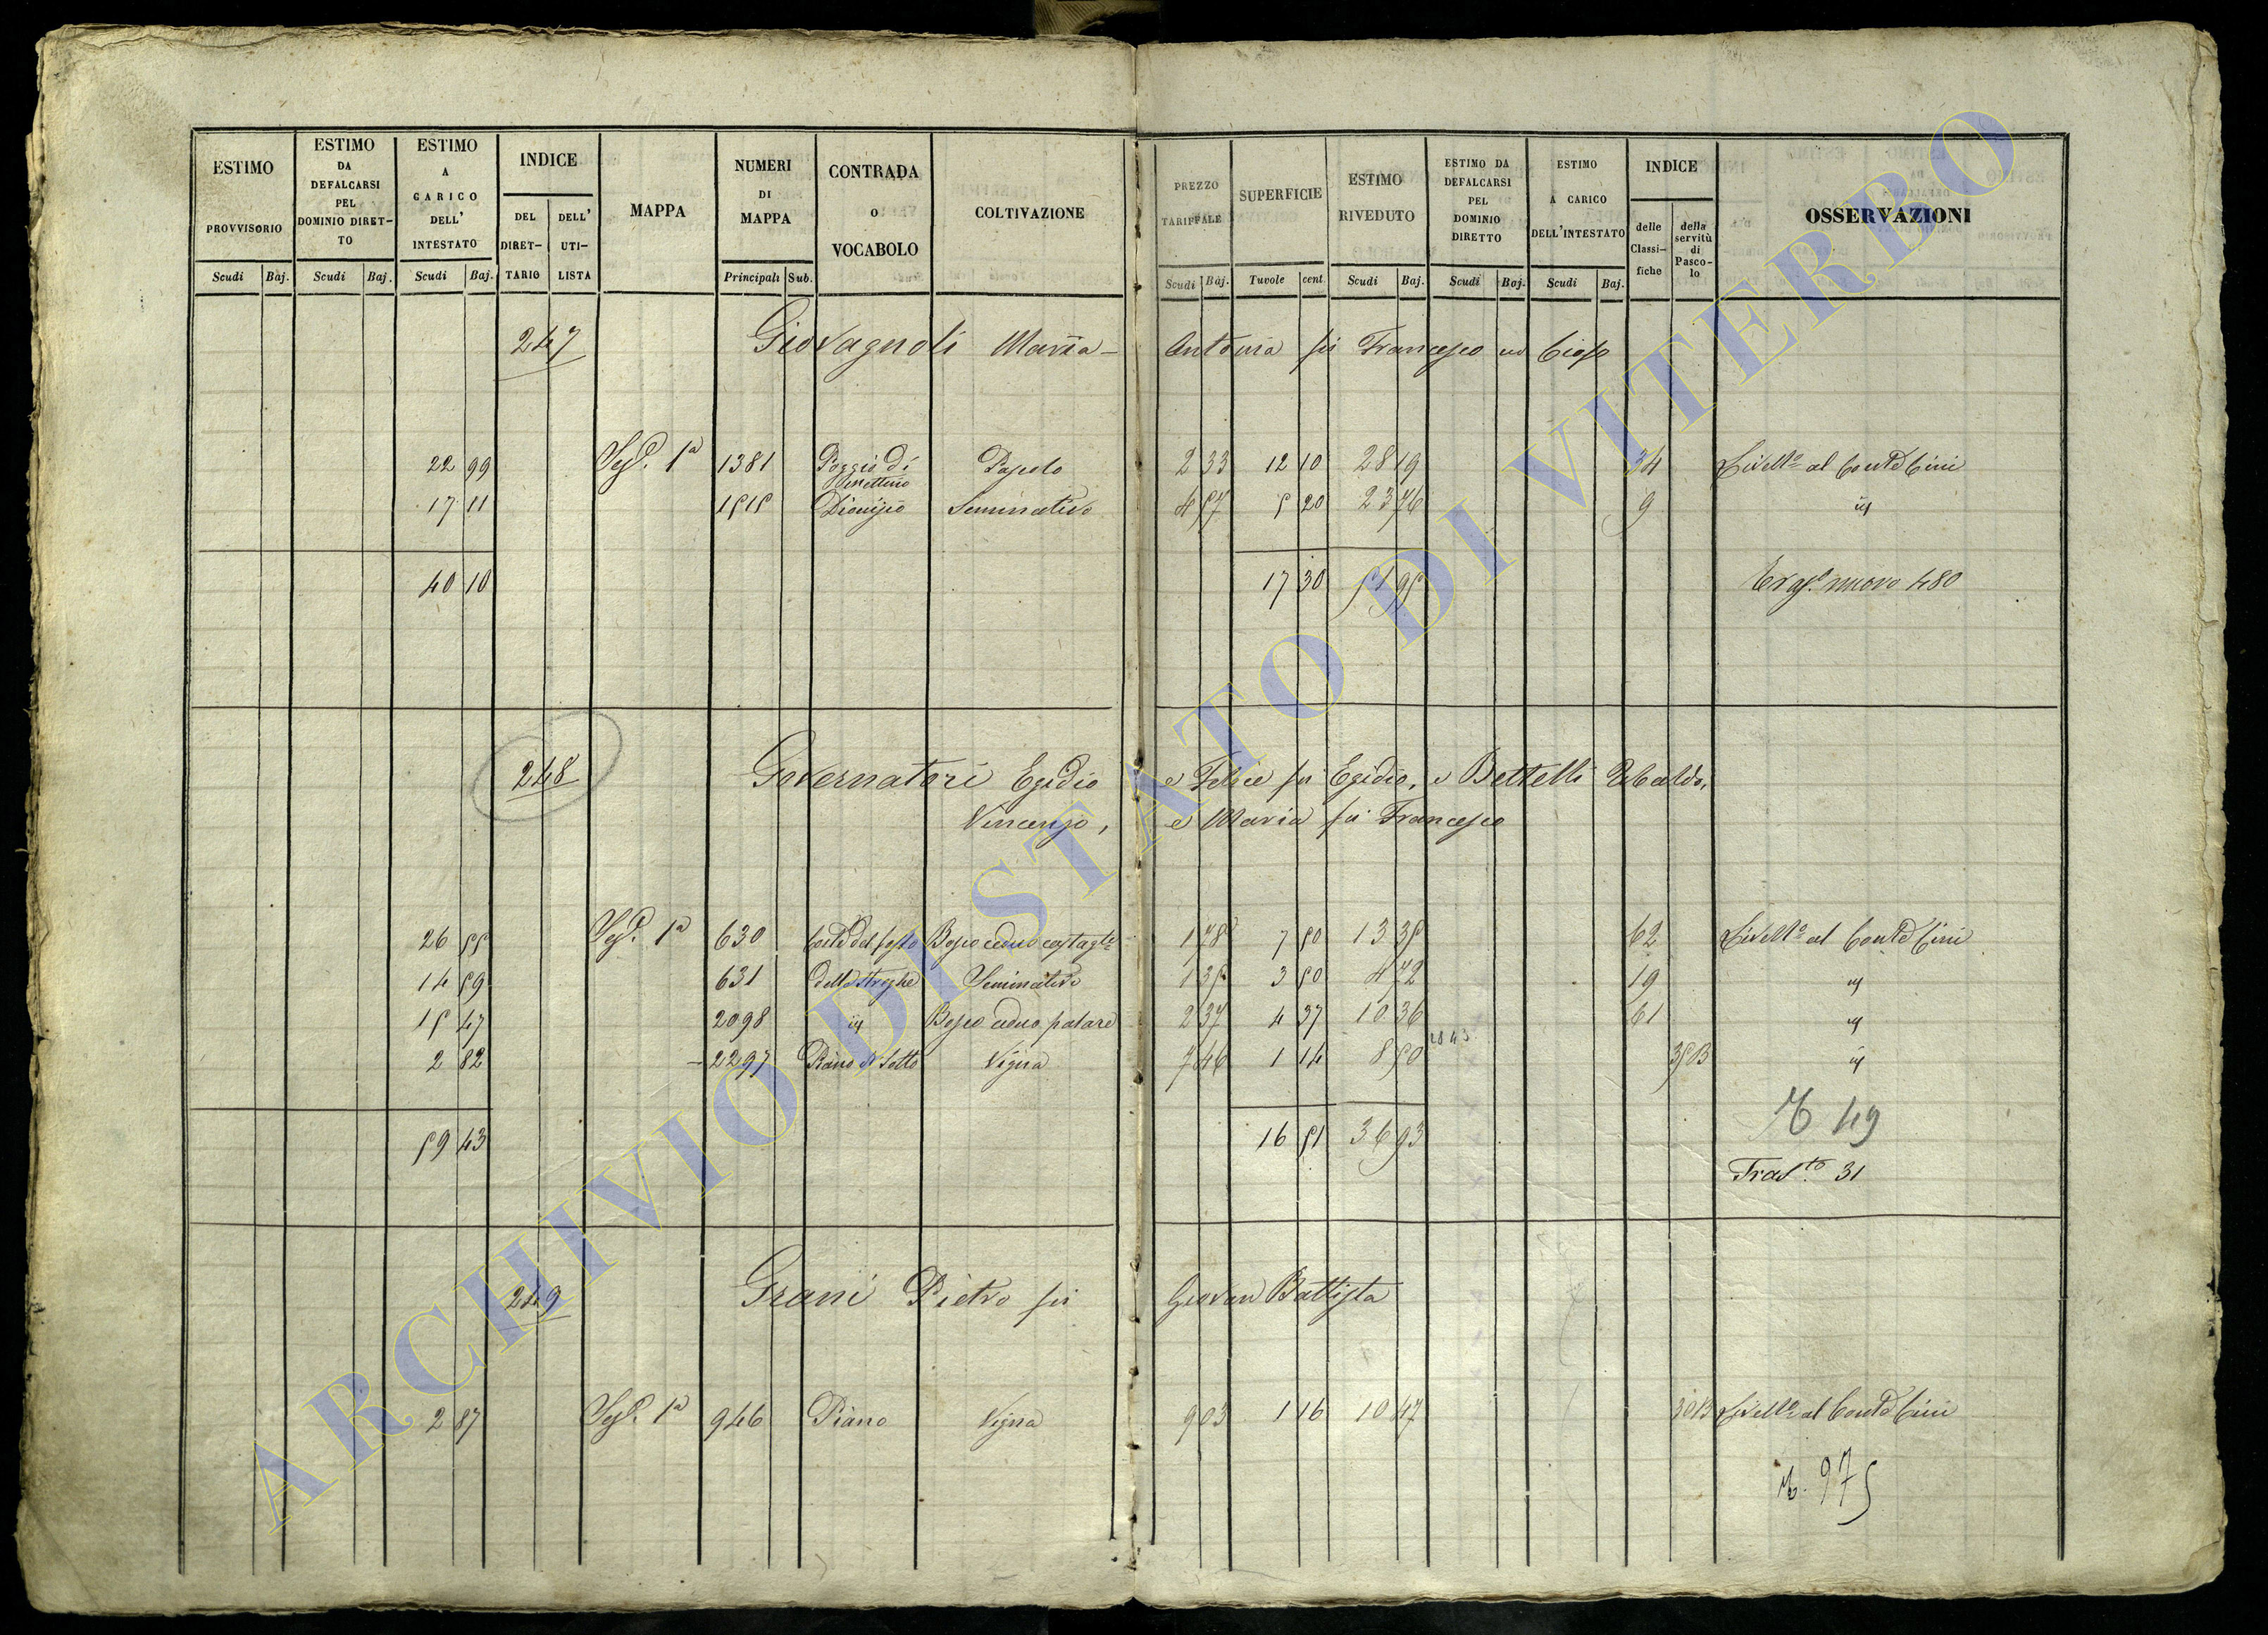 ESTIMO PROVVISORIO Scudi Baj.
ESTIMO DA DEFALCARSI PEL DOMINIO DIRETTO Scudi Baj.
ESTIMO A CARICO DELL' INTESTATO Scudi Baj.
INDICE DEL DIRETTARIO DELL' UTILISTA
MAPPA
NUMERI DI MAPPA Principali Sub.
CONTRADA O VOCABOLO
COLTIVAZIONE
PREZZO TARIFFALE Scudi Baj.
SUPERFICIE Tuvole cent
ESTIMO RIVEDUTO Scudi Baj.
ESTIMO DA DEFALCARSI PEL DOMINIO DIRETTO Scudi Baj.
ESTIMO A CARICO DELL'INTESTATO Scudi Baj.
INDICE delle Classifiche della servitù di Pascolo
OSSERVAZIONI
247 Giovagnoli Maria Antonia fu Francesco
22 99 Sez.e 1a 1381 Poggio di Pascolo 2 33 12 10 28 19 34 Livell.o al Conte Cini
17 11 1515 Dionisio Seminativo 4 57 5 20 23 76 9 id
40 10 17 30 51 95 nuovo 480
248 Governatori Egidio e Felice fu Egidio, e Bettelli Ubaldo,
Vincenzo, e Maria fu Francesco
26 55 Sez.e 1a 630 Bosco ceduo 1 78 7 50 13 35 62 Livell.o al Conte Cini
14 59 631 delle Streghe Seminativo 1 35 3 50 4 72 19 id
15 47 2098 id Bosco ceduo palare 2 37 4 37 10 36 61 id
2 82 2297 Piano di Sotto Vigna 7 46 1 14 8 50 35B id
59 43 16 51 36 93 49
Tras.to 31
249 Grani Pietro fu Giovan Battista
2 87 Sez.e 1a 946 Piano Vigna 9 03 1 16 10 47 30B Livell.o al Conte Cini
975
ARCHIVIO DI STATO DI VITERBO